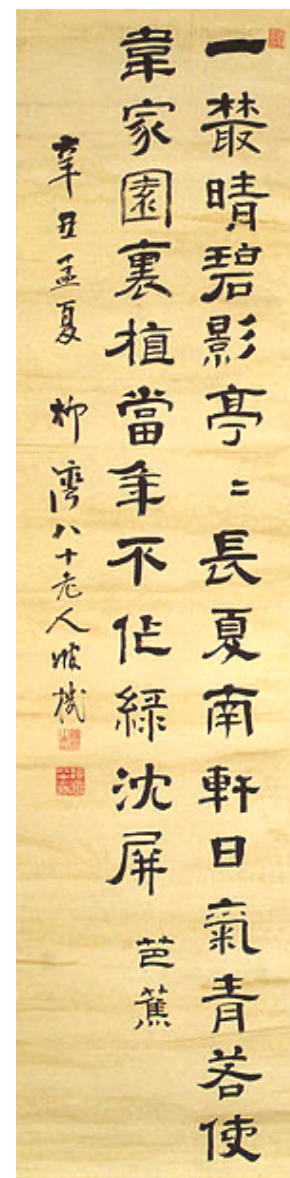 一叢晴碧影亭〻長夏南軒日氣青若使
韋家園裏植當年不作緑沈屏 芭蕉
辛丑孟夏 柳灣八十老人機